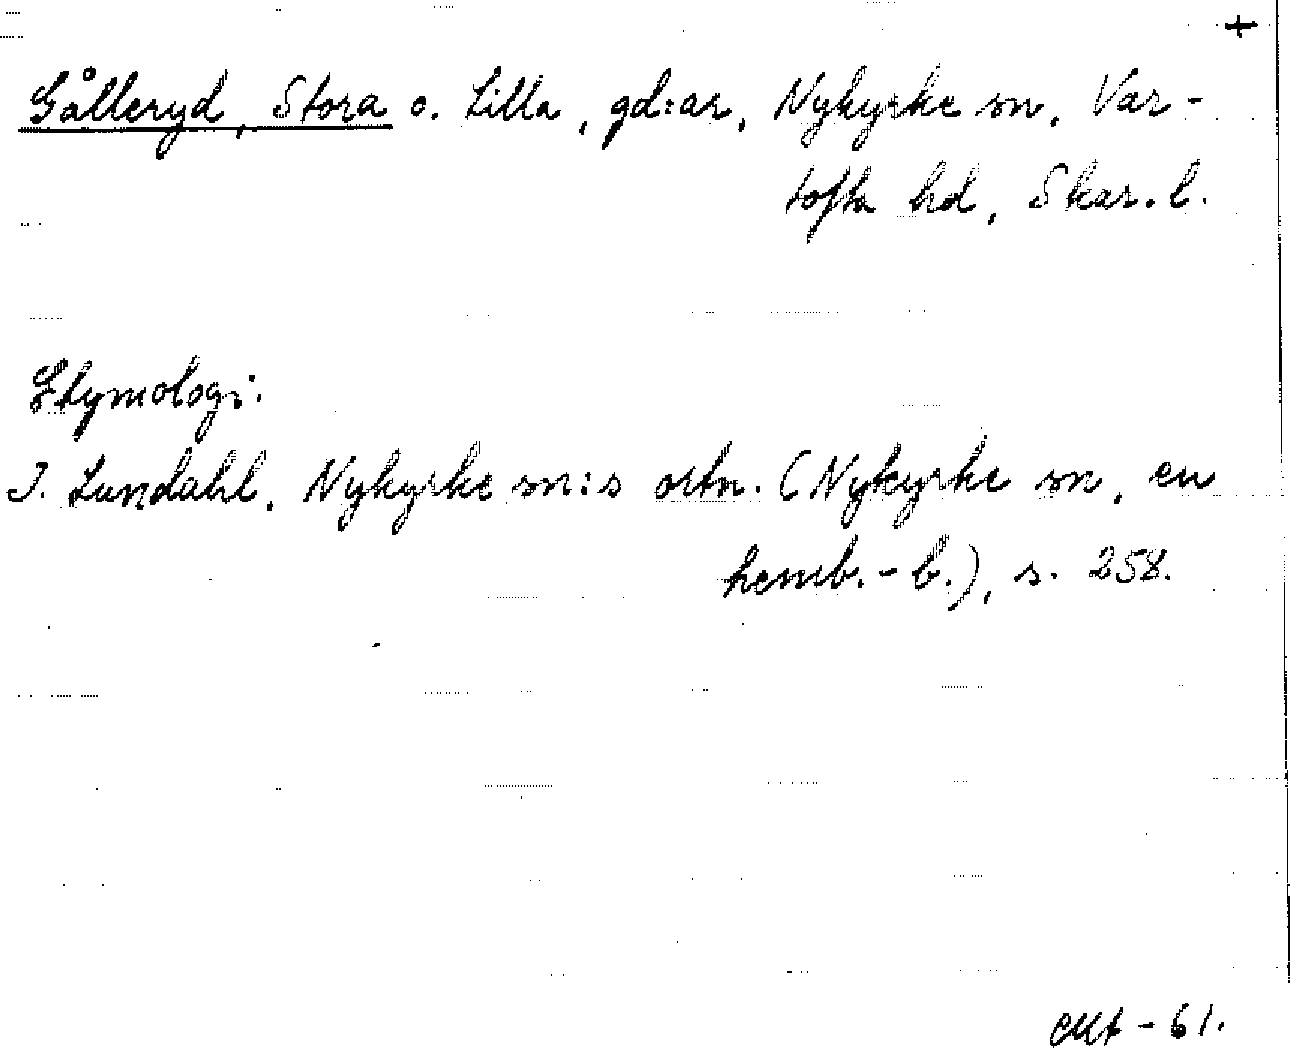 +
Gålleryd, Stora o. Lilla, gd:ar, Nykyrke sn, Var-
tofta hd, Skar. l.
Etymologi:
I. Lundahl, Nykyrke sn:s ortn. (Nykyrke sn, en
hemb.-b.), s. 258.
-61.